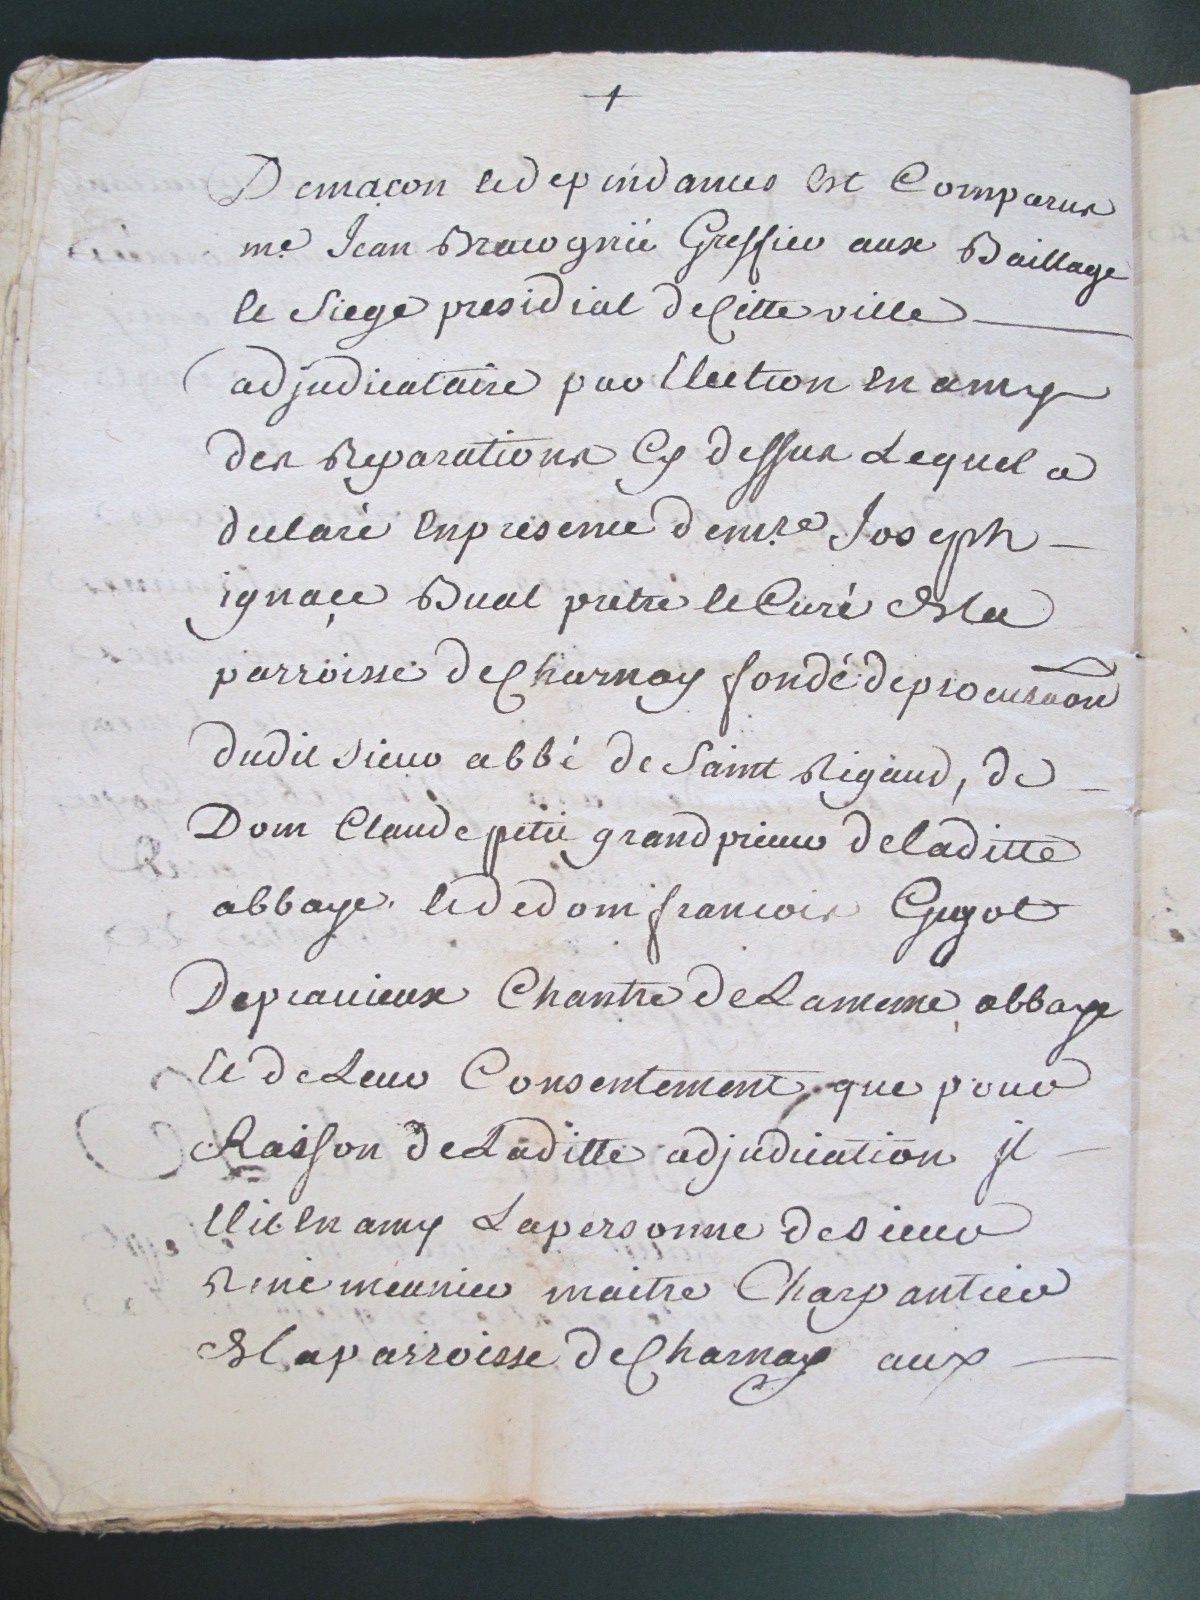 +
Demacon et dependances est Comparus
me. Jean Greffier aux Baillage
et Siege presidial de Cette ville
adjudicataire par Election en amy
des Reparations Cy dessus Lequel a
declaré En presence de mre Joseph
ignace Bual pretre et Curé de la
parroisse de Charnay fondé de procuraon
dudit sieur abbé de Saint Rigaud, de
Dom Claude petit grand prieur de laditte
abbaye. et de dom francois Guyot
Depravieux Chantre de La meme abbaye
et de Leur Consentement que pour
Raison de Laditte adjudication il
Elit En amy La personne de sieur
René meunier maitre Charpantier
de la parroisse de Charnay aux